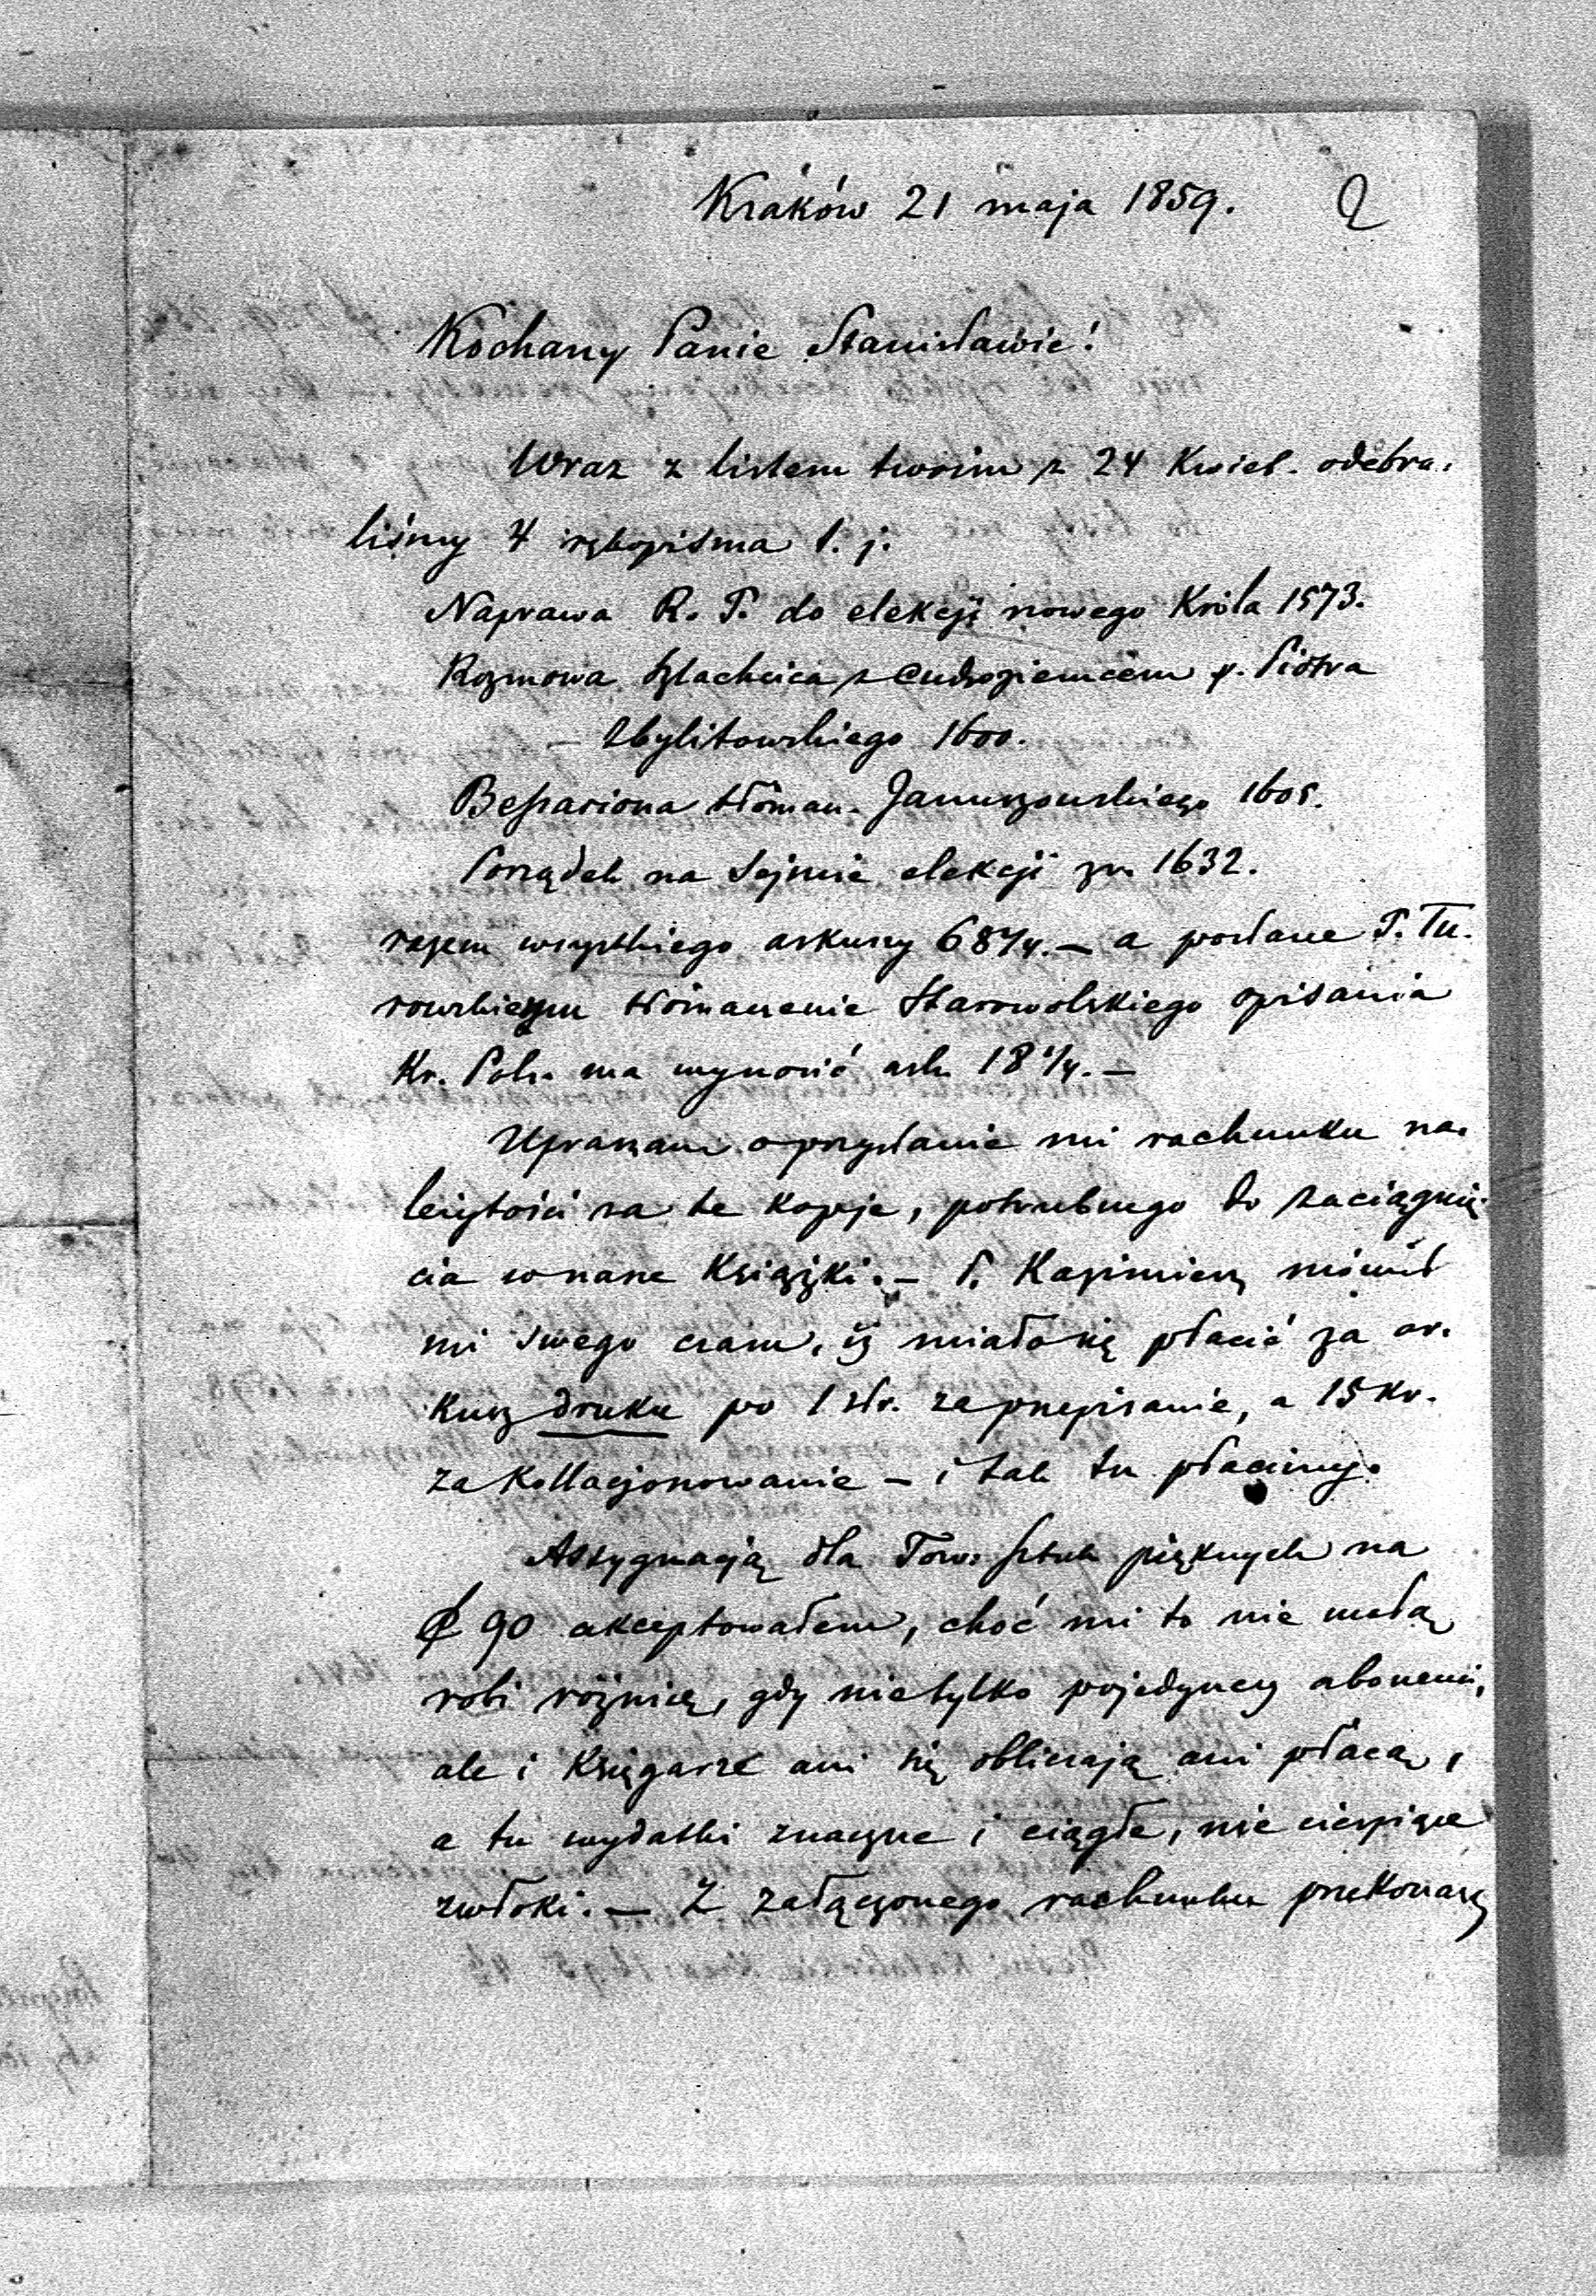 Kraków 21 maja 1859. 2
Kochany Panie Stanisławie!
Wraz z listem twoim z 24 Kwiet. odebra-
liśmy 4 rękopisma t. j.
Naprawa R. P. do elekcji nowego Króla 1573.
Rozmowa szlachcica z Cudzoziemcem p. Piotra
Zbylitowskiego 1600.
Bessariona tłóman. Januszowskiego 1605.
Porządek na Sejmie elekcji 1632.
razem wszystkiego arkuszy 68 - a posłane P. Tu-
rowskiemu tłómaczenie Starowolskiego opisania
Kr. Pols. ma wynosić ark. 18 1/4. -
Upraszam o przysłanie mi rachunku na-
leżytości za te kopje, potrzebnego do zaciągnię-
cia w nasze Książki. - P. Kazimierz mówił
mi swego czasu, iż miało się płacić za ar-
kusz druku po 1 złr. za przepisanie, a 15 Kr.
za Kollacjonowanie - i tak tu płacimy.
Assygnacją dla Tow. sztuk pięknych na
90 akceptowałem, choć mi to nie małą
robi różnicę, gdy nietylko pojedynczy abonenci,
ale i Księgarze ani się obliczają ani płacą,
a tu wydatki znaczne i ciągłe, nie cierpiące
zwłoki. - Z załączonego rachunku przekonasz